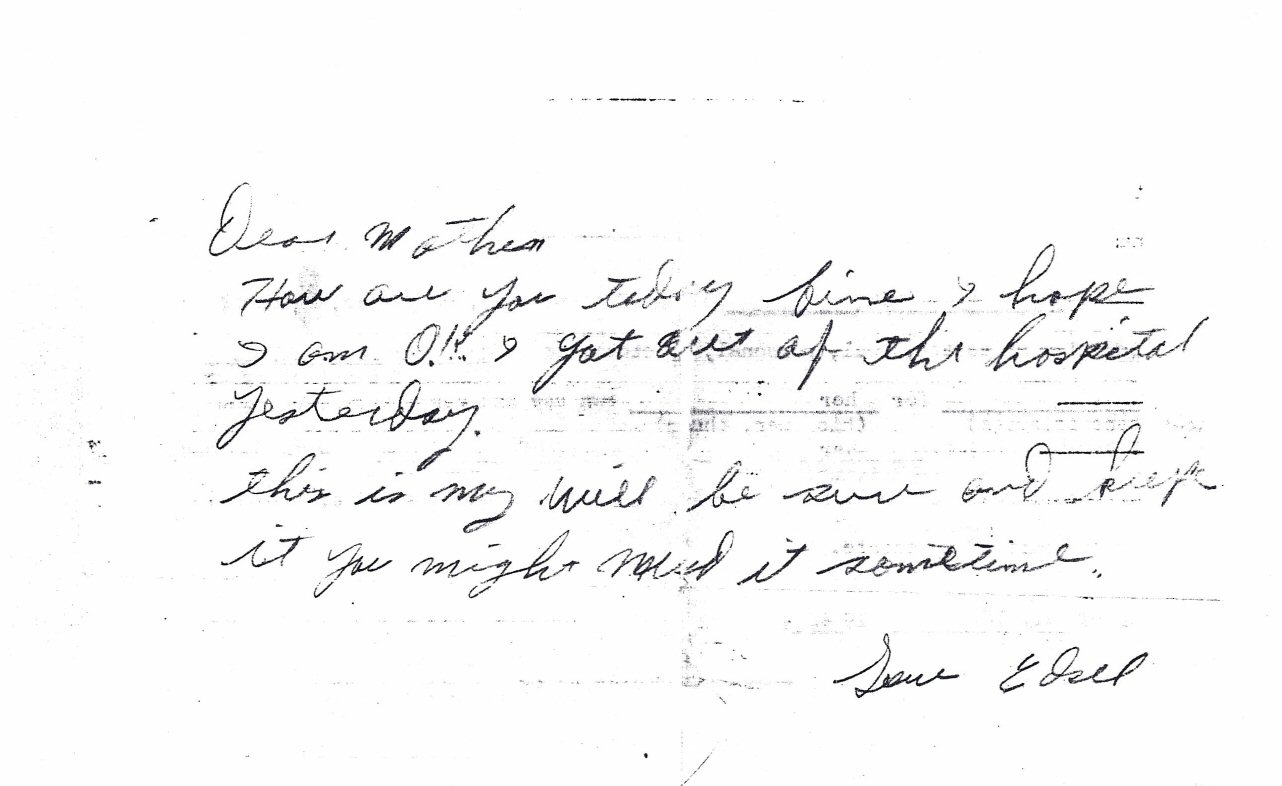 Dear Mother
How are you today fine I hope
I am O.K. I got out of the hospital
yesterday.
this is my will be sure and keep
it you might need it sometime.
Love Edsel